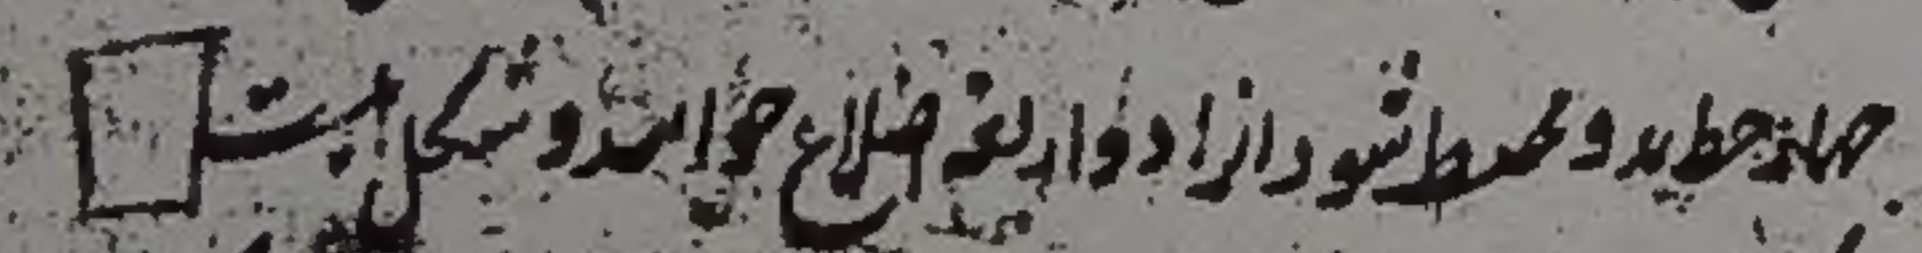 چهار خط بدو محیط شود از اذوا اربعة اضلاع خوانند و شکل اینست